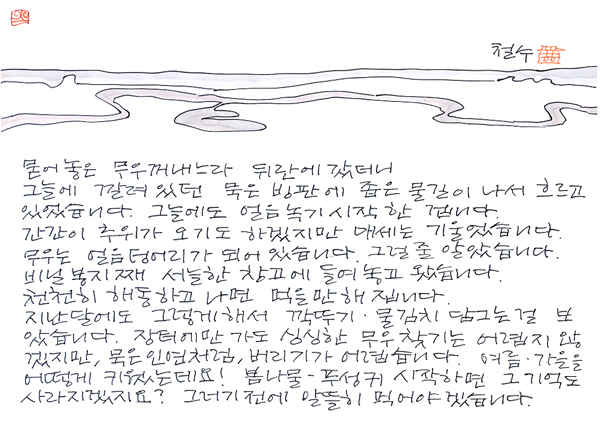 철수
묻어 놓은 무우꺼내느라 뒤란에 갔더니
그늘에 깔려 있던 묵은 빙판에 좁은 물길이 나서 흐르고
있었습니다. 그늘에도 얼음 녹기 시작한 겁니다.
간간이 추위가 오기도 하겠지만 대세는 기울었습니다.
무우는 얼음 덩어리가 되어 있습니다. 그럴 줄 알았습니다.
비닐 봉지째 서늘한 창고에 들여 놓고 왔습니다.
천천히 해동하고 나면 먹을만 해 집니다.
지난달에도 그렇게해서 깍뚜기·물김치 담그는걸 보
았습니다. 장터에만 가도 싱싱한 무우 찾기는 어렵지 않
겠지만, 묵은인연처럼, 버리기가 어렵습니다. 여름·가을을
어떻게 키웠는데요! 봄나물-푸성귀 시작하면 그기억도
사라지겠지요? 그러기전에 알뜰히 먹어야겠습니다.